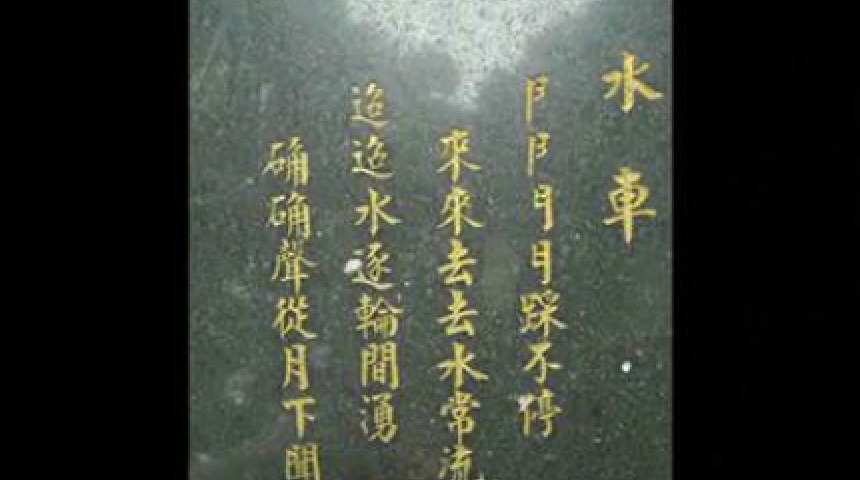 水車
月月踩不停
來來去去水常流
迢迢水逐輪間湧
确确聲從月下聞